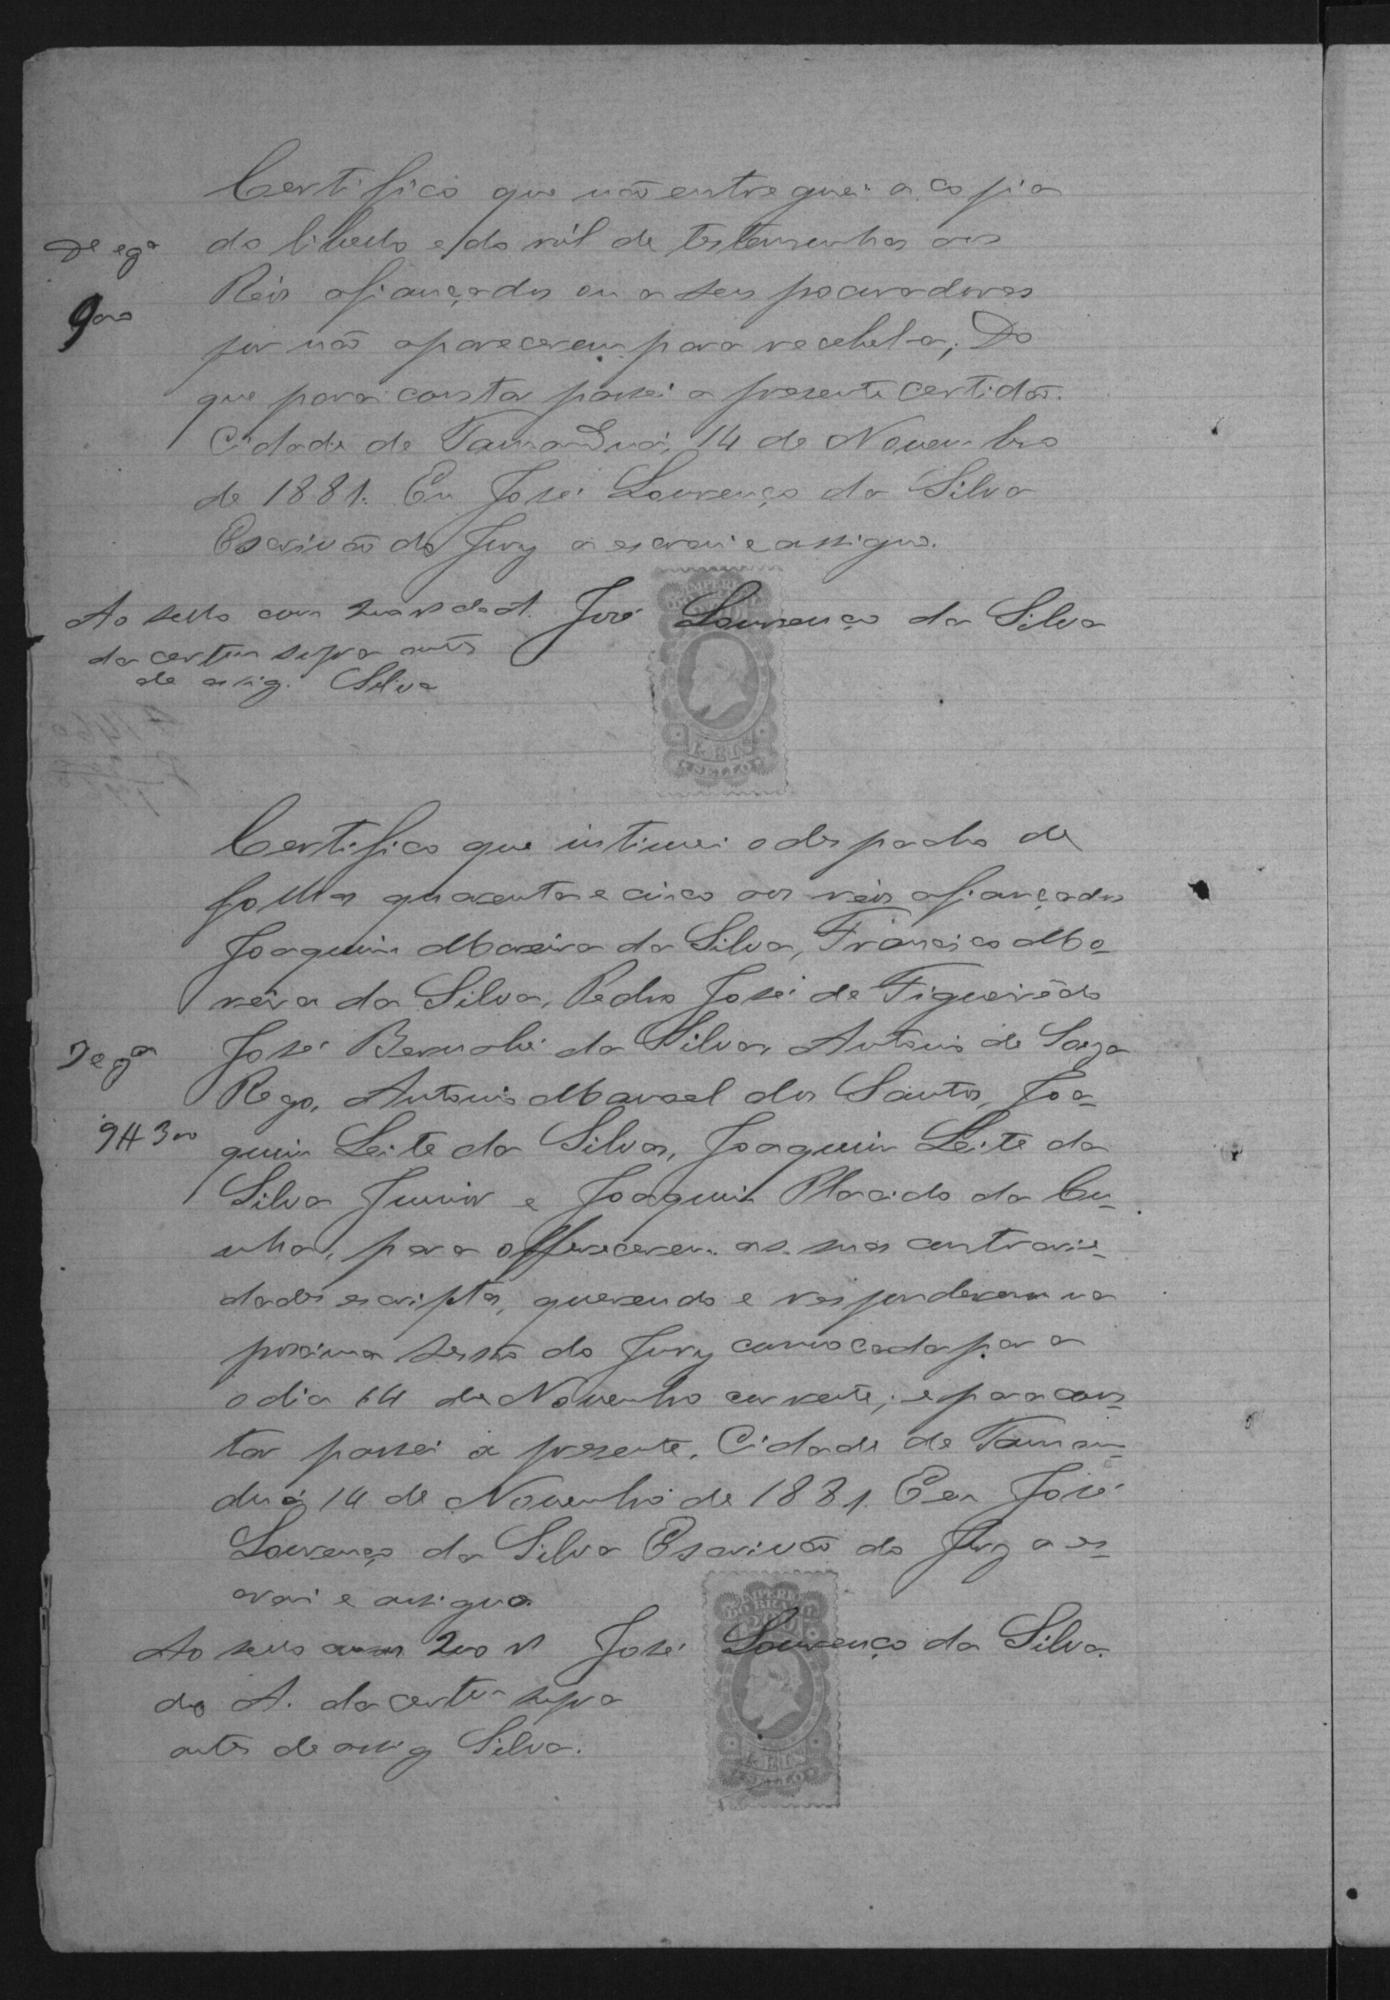 Certifico que não entreguei a copia
do libello e do ról de testemunhas aos
Réos afiançados ou a seus pocuradores
por não aparecerem para recebel-a; Do
que para constar passei a presente certidão.
Cidade de Tamanduá, 14 de Novembro
de 1881. Eu José Lourenço da Silva
Escrivão do Jury a escrevi e assigno.
José Lourenço da Silva
Ao sello com
da certm supra antes
de assig. Silva
Certifico que intimei o despacho de
folhas quarenta e cinco aos réos afiançados
Joaquim Moreira da Silva, Francisco Mo-
reira da Silva, Pedro José de Figueirêdo
José Bernabé da Silva, Antonio de Souza
Rego, Antonio Manoel dos Santos, Joa-
quim Leite da Silva, Joaquim Leite da
Silva Junior e Joaquim Placido da Cu-
nha, para offerecerem as suas contrarie-
dades escriptas, querendo e responderem na
proxima sessão do Jury convocada para
o dia 14 de Novembro corrente; e para cons-
tar passei a presente. Cidade de Taman-
duá 14 de Novembro de 1881. Eu José
Lourenço da Silva Escrivão do Jury a es-
crevi e assigno.
José Lourenço da Silva.
Ao sello com 200 rs
do A. da certm supra
antes de assig Silva.